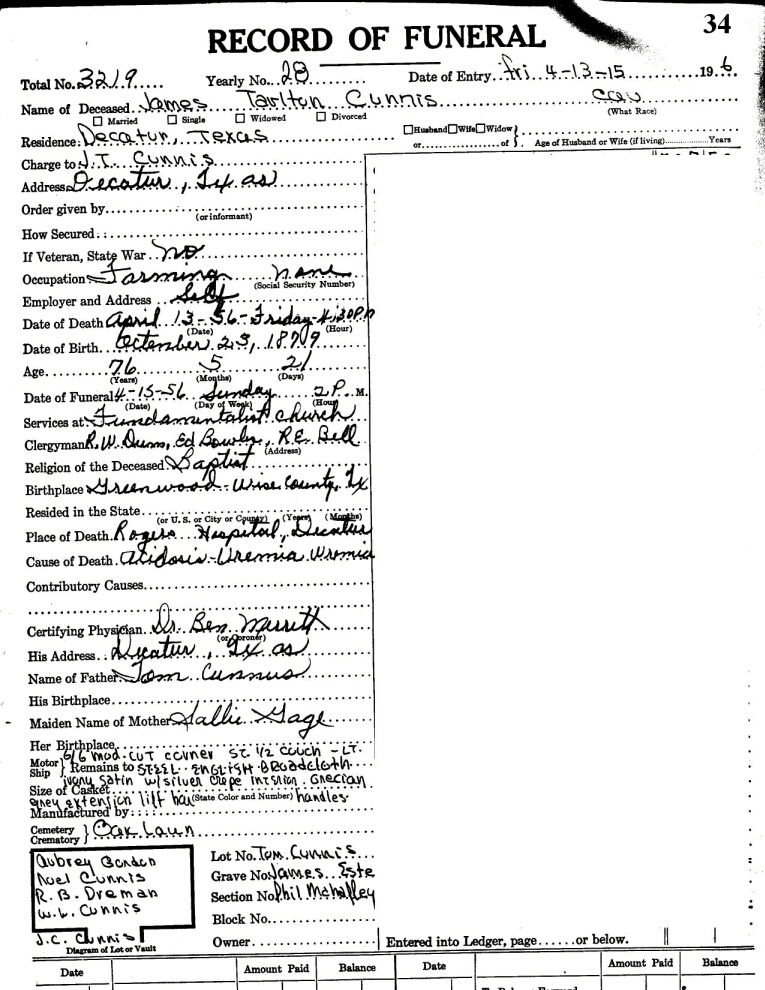 34
RECORD OF FUNERAL
Total No. 3219 Yearly No. 28 Date of Entry Fri 4-13-15 19 6
Name of Deceased James Tarlton Cunnis Cau
Married Single Widowed Divorced (What Race)
Residence: Decatur, Texas Husband Wife Widow or of Age of Husband or Wife (if living) Years
Charge to J.T. Cunnis
Address Decatur, Tx as
Order given by
(or informant)
How Secured
If Veteran, State War no
Occupation Farming none
(Social Security Number)
Employer and Address Self
Date of Death April 13-56-Friday-4:30Pm
(Date) (Hour)
Date of Birth 23, 1879
Age 76 5 21
(Years) (Months) (Days)
Date of Funeral 4-15-56 Sunday 2P. M.
(Date) (Day of Week) (Hour)
Services at Fundamentalist church
Clergyman R.W. Dunn, Ed R.E. Bell
(Address)
Religion of the Deceased Baptist
Birthplace Greenwood-Wise County, Tx
Resided in the State
(or U. S. or City or County) (Years) (Months)
Place of Death Rogers Hospital, Decatur
Cause of Death Acidosis-Uremia
Contributory Causes
Certifying Physician Dr. Ben Merritt
(or Coroner)
His Address: Decatur, Tx as
Name of Father Tom Cunnus
His Birthplace
Maiden Name of Mother Sallie Gage
Her Birthplace
6/6 mod. cut corner St. 1/2 couch - LT.
Motor Ship } Remains to STEEL- ENGLISH BROADCLOTH
ivory satin w/silver crepe interior. Grecian
Size of Casket
grey extension lift (State Color and Number) handles
Manufactured by:
Cemetery Crematory } Oak Laun
Aubrey Borden
Noel Cunnis
R. B. Dreman
W.L. Cunnis
J.C. Cunnis
Diagram of Lot or Vault
Lot No. Tom Cunnis
Grave No. James Este
Section No. Phil
Block No.
Owner Entered into Ledger, page or below.
Date Amount Paid Balance Date Amount Paid Balance